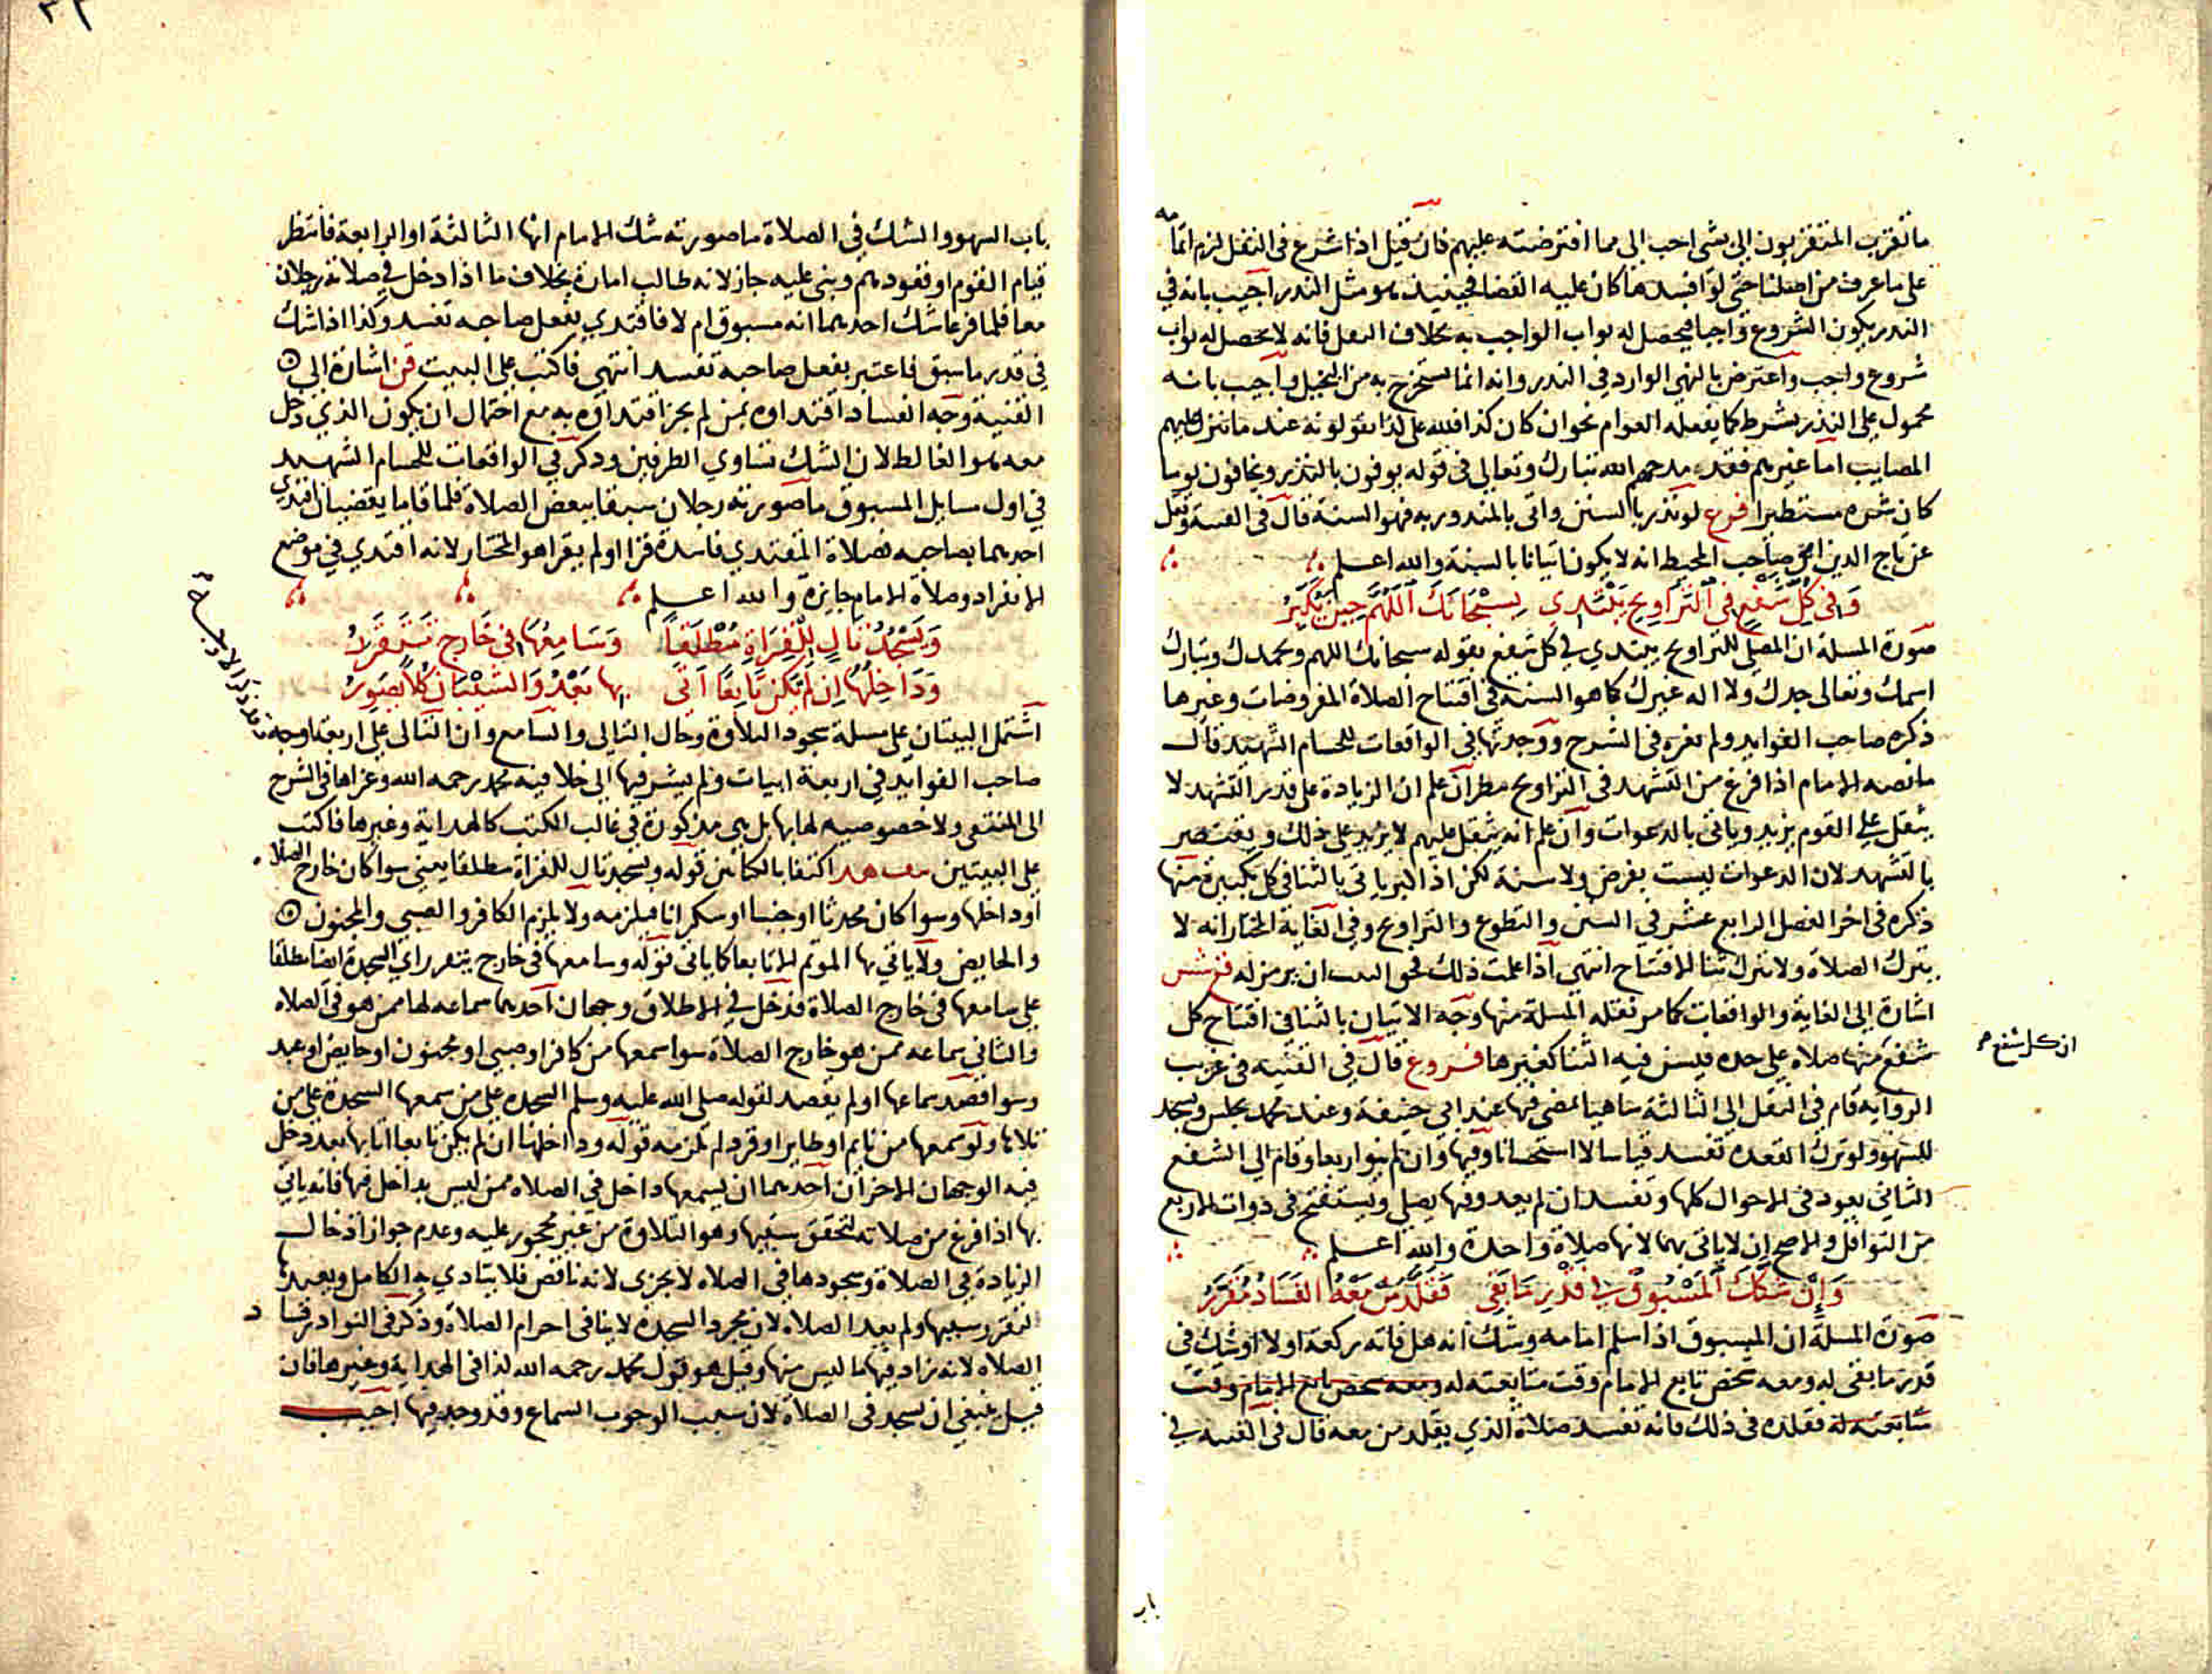 ما تقرب المتقربون الي بشي احب الي مما افترضته عليهم فان قيل اذا شرع في النفل لزم اتمامه
على ما عرف من اصلنا حتى لو افسدها كان عليه القضا فحينيذ هو مثل النذر اجيب بانه في
النذر يكون الشروع واجبا فيحصل له ثواب الواجب به بخلاف النفل فانه لا يحصل له ثواب
شروع واجب واعترض بالنهي الوارد في النذر وانه انما يستخرج به من البخيل واجيب بانه
محمول على النذر بشرط كما يفعله العوام نحو ان كان كذا فلله علي كذا يقولونه عند ما تنزل عليهم
المصايب اما غيرهم فقد مدحهم الله تبارك وتعالى في قوله يوفون بالنذر ويخافون يوما
كان شره مستطيرا فرع لو نذر بالسنن واتى بالمنذور به فهو السنة قال في القنية ونقل
عن تاج الدين اخي صاحب المحيط انه لا يكون اتيانا بالسنة والله اعلم
وَفِي كُلِّ شَفْعٍ فِي التَّرَاوِيحِ يَبْتَدِي بِسُبْحَانَكَ اللَّهُمَّ حِينَ يُكَبِّرُ
صورة المسلة ان المصلي للتراويح يبتدي في كل شفع بقوله سبحانك اللهم وبحمدك وتبارك
اسمك وتعالى جدك ولا اله غيرك كما هو السنة في افتتاح الصلاة المفروضات وغيرها
ذكره صاحب الفوايد ولم يعزه في الشرح ووجدتها في الواقعات للحسام الشهيد قال
ما نصه الامام اذا فرغ من التشهد في التراويح نظر ان علم ان الزيادة على قدر التشهد لا
يثقل على القوم يزيد وياتي بالدعوات وان علم انه يثقل عليهم لا يزيد على ذلك ويقتصر
بالتشهد لان الدعوات ليست بفرض ولا سنة لكن اذا كبر ياتي بالثنا في كل تكبيرة منها
ذكره في اخر الفصل الرابع عشر في السنن والتطوع والتراويح وفي الغاية المختار انه لا
يترك الصلاة ولا يترك ثنا الافتتاح انتهى اذا علمت ذلك فحق البيت ان يرمز له فغ شس
اشارة الى الغاية والواقعات كما مر نقله المسلة منها وجه الاتيان بالثنا في افتتاح كل
شفع منها صلاة على حده فيسن فيه الثنا كغيرها فروع قال في القنية في غريب
ان كل شفع صح
الرواية قام في النفل الى الثالثة ساهيا يمضي فيها عند ابي حنيفة وعند محمد يجلس ويسجد
للسهو ولو ترك القعدة تفسد قياسا لا استحسانا وفيها وان لم ينو اربعا وقام الى الشفع
الثاني يعود في الاحوال كلها وتفسد ان لم يعد وفيها يصلي ويستفتح في ذوات الاربع
من النوافل والاصح ان لا ياتي بهما لانها صلاة واحدة والله اعلم
وَاِنْ شَكَّكَ المَسْبُوقُ فِي قَدْرِ مَا بَقِي فَقَلَّدَ مَنْ مَعْهُ الفَسَادُ مُقَرَّرُ
صورة المسلة ان المسبوق اذا سلم امامه وشك انه هل فاته ركعة او لا او شك في
قدر ما بقي له ومعه شخص تابع الامام وقت متابعته له ومعه شخص تابع الامام وقت
متابعته له فقلده في ذلك فانه تفسد صلاة الذي يقلد من معه قال في القنية في
باب
باب السهو والشك في الصلاة ما صورته شك الامام انها الثالثة او الرابعة فانتظر
قيام القوم او قعودهم وبنى عليه جاز لانه طالب امارة بخلاف ما اذا دخل في صلاته رجلان
معا فلما فرغا شك احدهما انه مسبوق ام لا فاقتدي بفعل صاحبه تفسد وكذا اذا شك
في قدر ما سبق فاعتبر بفعل صاحبه تفسد انتهى فاكتب على البيت قن اشارة الى
القنية وجه الفساد اقتداوه بمن لم يجز اقتداوه به مع احتمال ان يكون الذي دخل
معه هو الغالط لان الشك تساوي الطرفين وذكر في الواقعات للحسام الشهيد
في اول مسايل المسبوق ما صورته رجلان سبقا ببعض الصلاة فلما قاما يقضيان اقتدي
احدهما بصاحبه فصلاة المقتدي فاسدة قرا او لم يقرا هو المختار لانه اقتدي في موضع
الانفراد وصلاة الامام جايزة والله اعلم
وَيَسْجُدُ تَالٍ لِلْقِرَاةِ مُطْلَقًا وَسَامِعُهَا فِي خَارِجٍ تَتَقَرَّرُ
وَدَاخِلُهَا اِنْ لَمْ يَكُنْ تَابِعًا اَتَى بِهَا بَعْدُ وَالشَّيْئَانِ كُلاًّ يُصَوَّرُ
اشتمل البيتان على مسلة سجود التلاوة وحال التالي والسامع وان التالي على اربعة اوجه
وقد ذكر الاوجه صح
صاحب الفوايد في اربعة ابيات ولم يشر فيها الى خلافية محمد رحمه الله وعزاها في الشرح
الى المنتقى ولا خصوصيه لها بها بل هي مذكورة في غالب الكتب كالهداية وغيرها فاكتب
على البيتين هد اكتفا بالكتابين قوله ويسجد تال للقراة مطلقا يعني سوا كان خارج الصلاه
او داخلها وسوا كان محدثا او جنبا او سكرانا فيلزمه ولا يلزم الكافر والصبي والمجنون
والحايض ولا ياتي بها الموتم الا تابعا كما ياتي قوله وسامعها في خارج يتقرر اي السجدة ايضا مطلقا
على سامعها في خارج الصلاة فدخل في الاطلاق وجهان احدهما سماعه لها ممن هو في الصلاه
والثاني سماعه ممن هو خارج الصلاة سوا سمعها من كافر او صبي او مجنون او حايض او عبد
وسوا قصد سماعها او لم يقصد لقوله صلى الله عليه وسلم السجدة على من سمعها السجدة على من
تلاها ولو سمعها من نايم او طاير او قرد لم تلزمه قوله وداخلها ان لم يكن تابعا اتا بها بعد دخل
فيه الوجهان الاخران احدهما ان يسمعها داخل في الصلاه ممن ليس بداخل فيها فانه ياتي
بها اذا فرغ من صلاته لتحقق سببها وهو التلاوة من غير محجور عليه وعدم جواز ادخال
الزيادة في الصلاة وسجودها في الصلاه لا يجزي لانه ناقص فلا يتادي به الكامل ويعيدها
لتقرر سببها ولم يعد الصلاه لان مجرد السجدة لا ينافي احرام الصلاة وذكر في النوادر فساد
الصلاه لانه زاد فيها ما ليس منها وقيل هو قول محمد رحمه الله كذا في الهداية وغيرها فان
قيل ينبغي ان يسجد في الصلاة لان سبب الوجوب السماع وقد وجد فيها اجيب